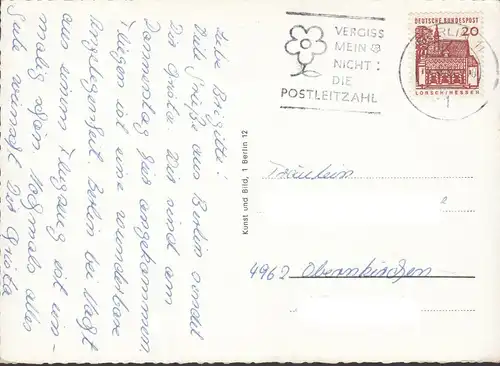 VERGISS
MEIN
NICHT:
DIE
POSTLEITZAHL
DEUTSCHE BUNDESPOST
20
LORSCH/HESSEN
1
Liebe Brigitte!
Viele Grüße aus Berlin sendet
Dir Gisela. Wir sind am
Donnerstag hier angekommen.
Fliegen ist eine wunderbare
Angelegenheit. Berlin bei Nacht
aus einem Flugzeug ist ein-
malig schön. Nochmals alles
Gute wünscht Dir Gisela
Kunst und Bild, 1 Berlin 12
Fräulein
4962 Obernkirchen